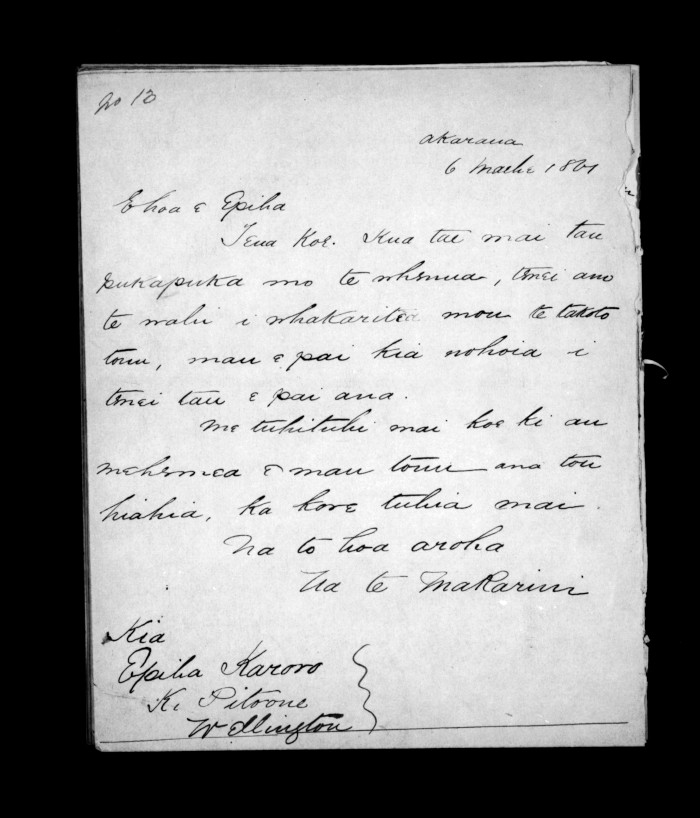 No 12
Akarana
6 Maehe 1861
E hoa e Epiha
Tena Koe. Kua tae mai tau
pukapuka mo te whenua, tenei ano
te wahi i whakaritea mou te takoto
tonu, mau e pai kia nohoia i
tenei tau e pai ana.
Me tuhituhi mai koe ki au
mehemea e mau tonu ana tou
hiahia, ka kore tuhia mai.
Na to hoa aroha
Na te Makarini
Kia
Epiha Karoro
Ki Pitoone
Wellington